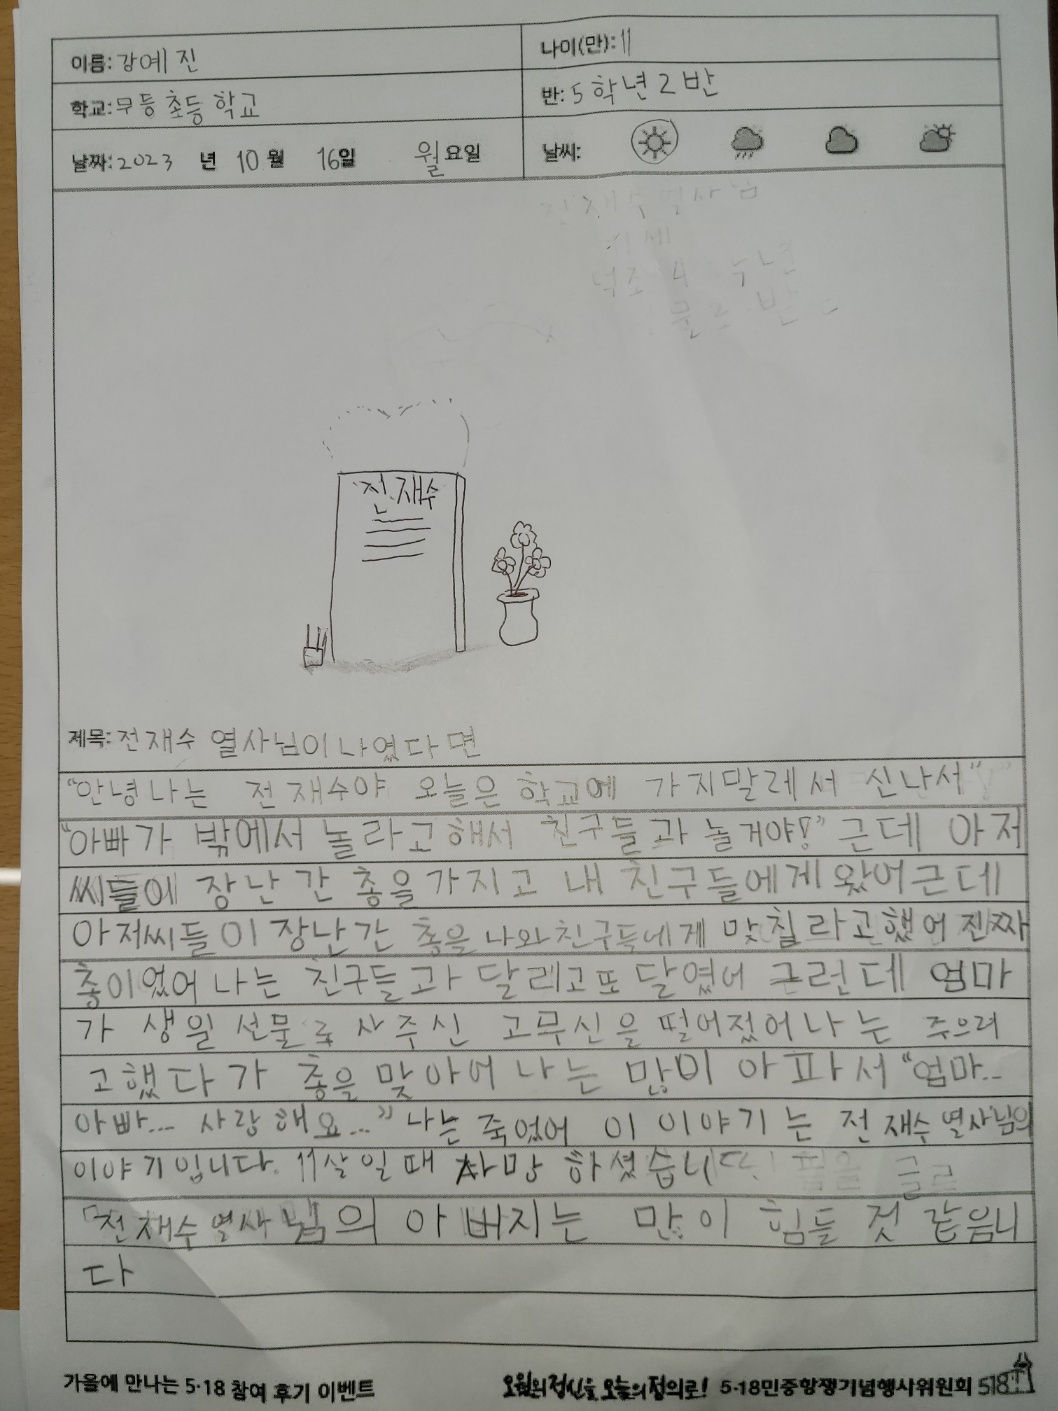 이름: 강예진
나이(만): 11
학교: 무등초등학교
반: 5학년 2반
날짜: 2023 년 10월 16일 월요일
날씨:
전재수열사님
전재수
제목: 전재수 열사님이 나였다면
"안녕 나는 전재수야 오늘은 학교에 가지말레서 신나서"
"아빠가 밖에서 놀라고해서 친구들과 놀거야!" 근데 아저
씨들이 장난간 총을 가지고 내 친구들에게 왔어 근데
아저씨들이 장난간 총을 나와 친구득네게 맞칠라고했어 진짜
총이였어 나는 친구들과 달리고또 달렸어 근런데 엄마
가 생일 선물로 사주신 고무신을 떨어졌어 나는 주으려
고했다가 총을 맞아어 나는 많이 아파서 "엄마...
아빠... 사랑해요..." 나는 죽었어 이 이야기는 전재수열사님의
이야기입니다. 11살일때 사망 하셨습니다.
「전재수열사님의 아버지는 많이 힘들 것 같음니
다
가을에 만나는 5·18 참여 후기 이벤트
오월의 정신을 오늘의 정의로! 5·18민중항쟁기념행사위원회 518